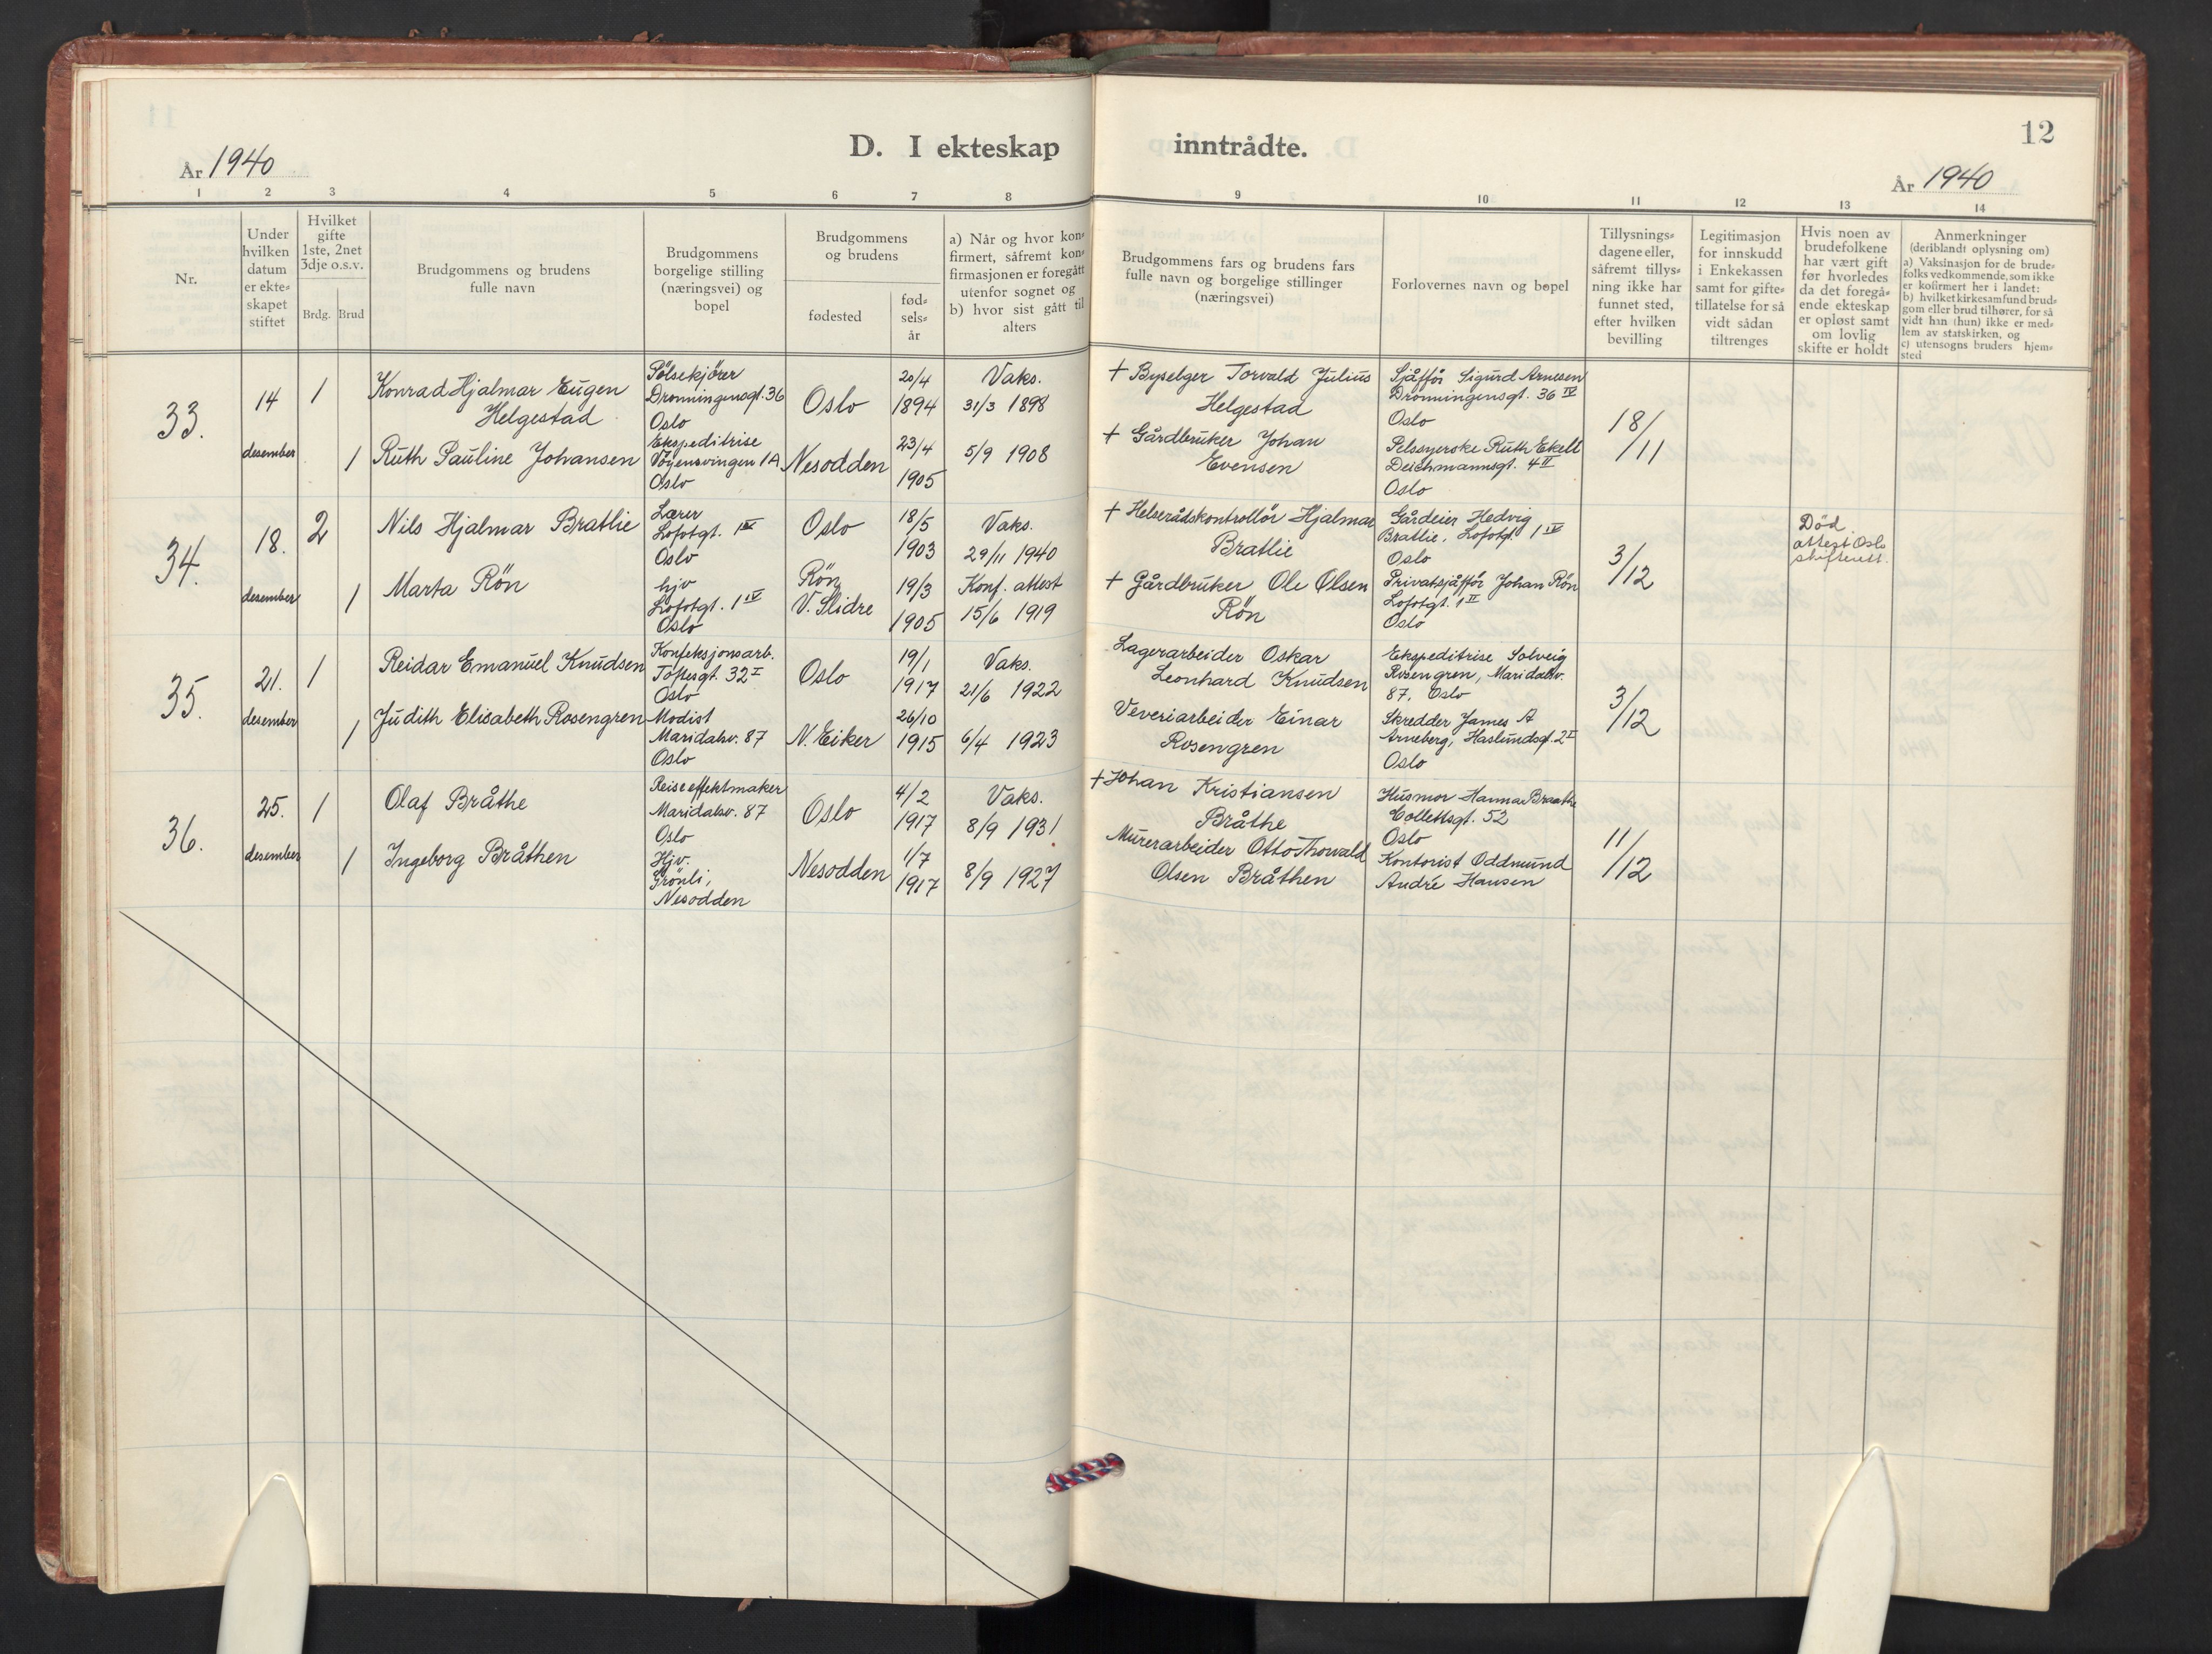 12
D. I ekteskap inntrådte.
År 1940
År 1940
1 2 3 4 5 6 7 8 9 10 11 12 13 14
Nr.
Under
hvilken
datum
er ekte-
skapet
stiftet
Hvilket
gifte
1ste, 2net
3dje o.s.v.
Brdg. Brud
Brudgommens og brudens
fulle navn
Brudgommens
borgelige stilling
(næringsvei) og
bopel
Brudgommens
og brudens
fødested
fød-
sels-
år
a) Når og hvor kon-
firmert, såfremt kon-
firmasjonen er foregått
utenfor sognet og
b) hvor sist gått til
alters
Brudgommens fars og brudens fars
fulle navn og borgelige stillinger
(næringsvei)
Forlovernes navn og bopel
Tillysnings-
dagene eller,
såfremt tillys-
ning ikke har
funnet sted,
efter hvilken
bevilling
Legitimasjon
for innskudd
i Enkekassen
samt for gifte-
tillatelse for så
vidt sådan
tiltrenges
Hvis noen av
brudefolkene
har vært gift
før hvorledes
da det foregå-
ende ekteskap
er opløst samt
om lovlig
skifte er holdt
Anmerkninger
(deriblandt oplysning om)
a) Vaksinasjon for de brude-
folks vedkommende, som ikke
er kofirmert her i landet:
b) hvilket kirkesamfund brud-
gom eller brud tilhører, for så
vidt han (hun) ikke er med-
lem av statskirken, og
c) utensogns bruders hjem-
sted
33.
14
desember
1
Konrad Hjalmar Eugen
Helgestad
Pölsekjörer
Dronningensgt. 36
Oslo
Oslo
20/4
1894
Vaks.
31/3 1898
+ Byselger Torvald Julius
Helgestad
Sjåfför Sigurd Arnesen
Dronningensgt. 36 IV
Oslo
18/11
1
Ruth Pauline Johansen
Ekspeditrise
Vöyensvingen 1A
Oslo
Nesodden
23/4
1905
5/9 1908
+ Gårdbruker Johan
Evensen
Pelssyerske Ruth Ekelt
Deichmannsgt. 4 II
Oslo
34.
18.
desember
2
Nils Hjalmar Bratlie
Lærer
Lofotgt. 1 IV
Oslo
Oslo
18/5
1903
Vaks.
29/11 1940
+ Helserådskontrollör Hjalmar
Bratlie
Gårdeier Hedvig
Bratlie, Lofotgt. 1 IV
Oslo
3/12
Död.
attest Oslo
skifterett.
1
Marta Rön
hjv
Lofotgt. 1 IV
Oslo
Rön,
V. Slidre
19/3
1905
Konf. attest
15/6 1919
+ Gårdbruker Ole Olsen
Rön
Privatsjåfför Johan Rön
Lofotgt. 1 II
Oslo
35.
21.
desember
1
Reidar Emanuel Knudsen
Konfeksjonsarb.
Toftesgt. 32 I
Oslo
Oslo
19/1
1917
Vaks.
21/6 1922
Lagerarbeider Oskar
Leonhard Knudsen
Ekspeditrise Solveig
Rosengren, Maridalsv.
87, Oslo
3/12
1
Judith Elisabeth Rosengren
Modist
Maridalsv. 87
Oslo
N. Eiker
26/10
1915
6/4 1923
Veveriarbeider Einar
Rosengren
Skredder James A
Arneberg, Haslundsgt. 2 I
Oslo
36.
25.
desember
1
Olaf Bråthe
Reiseeffektmaker
Maridalsv. 87
Oslo
Oslo
4/2
1917
Vaks.
8/9 1931
+ Johan Kristiansen
Bråthe
Husmor Hanna Braathe
Collettsgt. 52
Oslo
11/12
1
Ingeborg Bråthen
Hjv.
Grönli,
Nesodden
Nesodden
1/7
1917
8/9 1927
Murerarbeider Otto Thorvald
Olsen Bråthen
Kontorist Oddmund
André Hansen